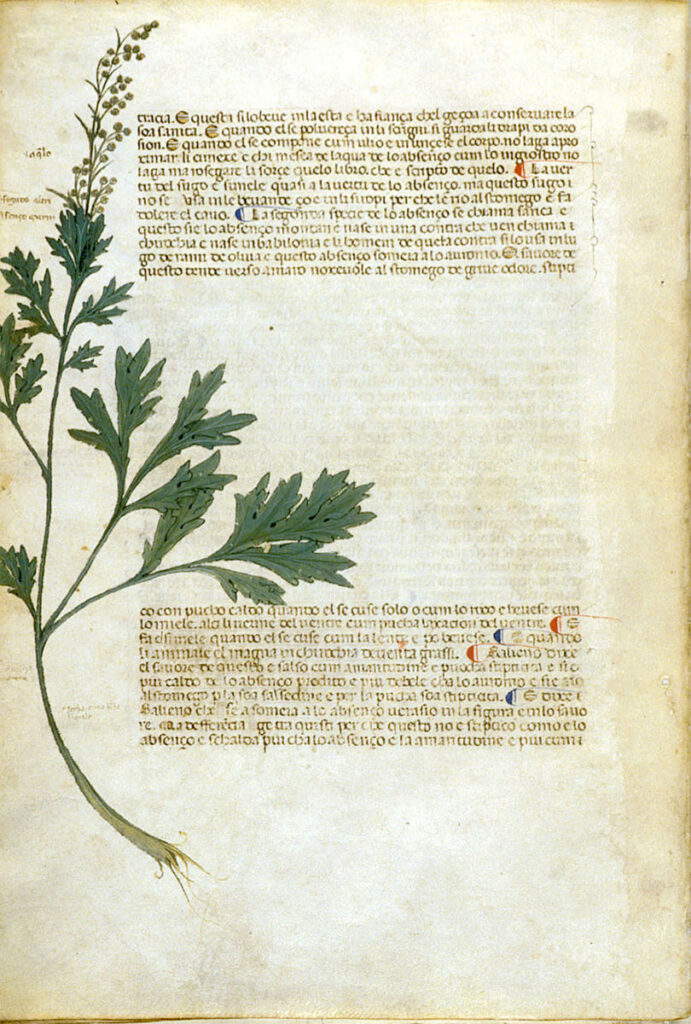 tracia. E questa si lo beve in la esta e ha fiança chel geçoa a conservare la
soa sanita. E quando el se polvereça in li scrigni. si guarda li drapi da coro
sion. E quando el se compone cum olio e unçerse el corpo. no laga apro
ximar li cimexe e chi mesea de laqua de lo absenço cum lo ingiostro no
laga ma rosegare li sorçe quelo libro. che e scripto de quelo. La ver
tu del sugo e simele quasi a la vertu de lo absenço. ma questo sugo i
no se usa in le bevande ço e in li siropi per che le no al stomego e fa
dolere el cavo. La segonda specie de lo absenço se chiama sanca e
questo sie lo absenço montan e nase in una contra che ven chiama
e nase in babilonia e li homeni de quela contra si lo usa in lugo
de rami de oliva e questo absenço someia a lo avronio. El savore de
questo tende verso amaro noxevole al stomego de grave odore. stipti
co con pucho caldo quando el se cuse solo o cum lo rixo e bevese cum
lo miele. alci li vermi del ventre cum pucha del ventre. E
fa el simele quando el se cuse cum la lente e po bevese. E quando
li animale el magna in deventa grassi. Galieno dixe
el savore de questo e salso cum amaritudine e pucha stipticita e sie
piu caldo de lo absenço predito e piu debele cha lo avronio e sie rio
al stomego p la soa salsedine e per la pucha soa stipticita. E dixe
Galieno che se a someia a lo absenço verasio in la figura e in lo savo
re. La defferēcia ge tra questi per che questo no e stiptico como e lo
absenço e schalda piu cha lo absenço e la amaritudine e piu cum i